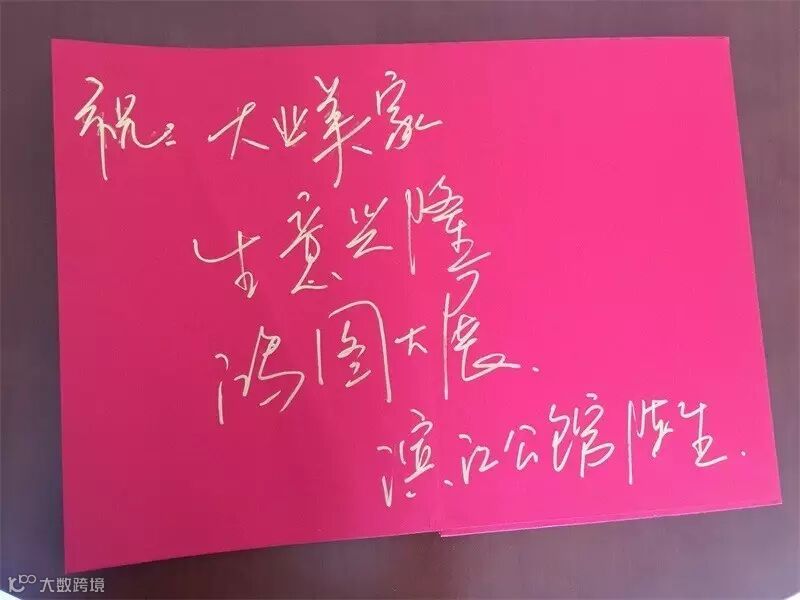 祝:大业美家
生意兴隆
鸿图大展.
滨江公馆陈生.
大数跨境